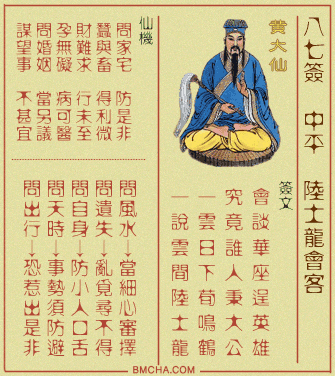 八七簽 中平 陸士龍會客
黃大仙
簽文
會談華座逞英雄
究竟誰人秉大公
一雲日下荀鳴鶴
一說雲間陸士龍
仙機
問家宅 防是非
蠶與畜 得利微
財難求 行未至
孕無礙 病可醫
問婚姻 當另議
謀望事 不甚宜
問風水→當細心審擇
問遺失→亂覓尋不得
問自身→防小人口舌
問天時→事勢須防避
問出行→恐惹出是非
BMCHA.COM